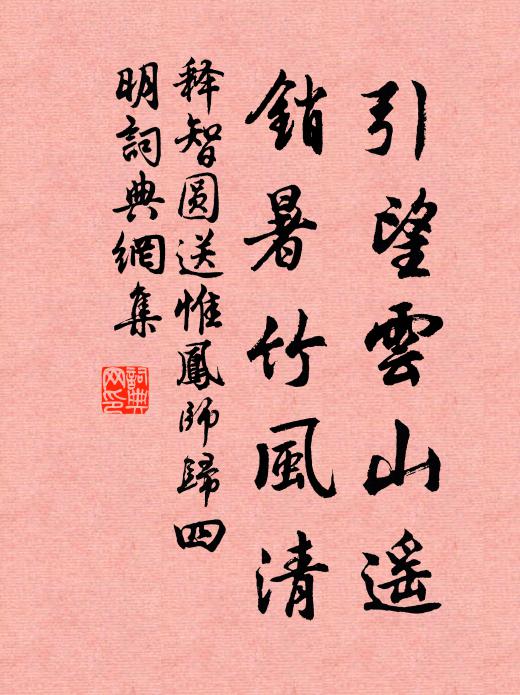 引望雲山遥
銷暑竹風清
释智圓送惟鳳師歸四
明詞典網集
詞典
网印